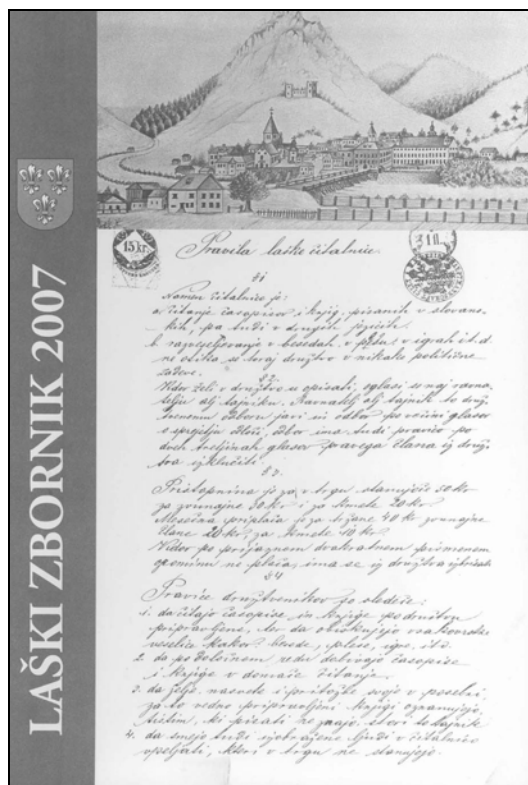 LAŠKI ZBORNIK 2007
15 kr.
Pravila laške čitalnice.
§ 1
Namen čitalnice je:
a. čitanje časopisov i knjig, pisanih v slovans-
kih, pa tudi v drugih jezicih.
b. razveseljevanje v besedah, v plesu, v igrah i.t.d.
ne v nikake politične
zadeve.
§ 2.
Kdor želi v družtvo se vpisati, oglasi se naj ravna-
telju alj tajniku. Ravnatelj alj tajnik to druž-
tvenemu odboru javi in odbor po večini glasov
o sprejetju odloči, odbor ima tudi pravico po
dveh tretjinah glasov pravega člana iz druž-
tva izključiti.
§ 3.
Pristopnina je za v trgu stanujoče 50 kr
za zvunajne 30 kr i za kmete 20 kr.
Mesečna priplača je za tržane 40 kr zvunajne
člane 20 kr, za kmete 10 kr.
Kdor po prijaznem dvakratnem pismenem
opominu ne plača, ima se iz družtva izbrisati.
§ 4
Pravice družtvenikov so sledeče:
1. da čitajo časopise in knjige po družtvu
pripravljene, ter da obiskujejo vsakovrstne
veselice kakor: besede, plese, igre, itd.
2. da po določenem redu dobivajo časopise
i knjige v domače čitanje.
3. da želje, nasvete i pritožbe svoje v posebni,
za to vedno pripravljeni knjigi oznanujejo,
tistim, ki pisati ne znajo, stori to tajnik
4. da smejo tudi izobražene ljudi v čitalnico
vpeljati, kteri v trgu ne stanujejo.